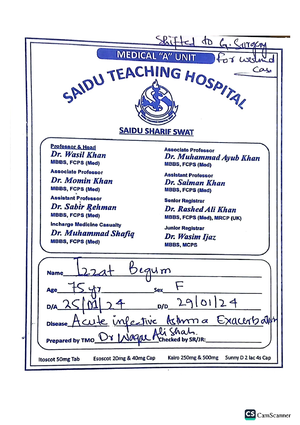 Shifted to G. Surgery
for wound
MEDICAL "A" UNIT
SAIDU TEACHING HOSPITAL
SAIDU SHARIF SWAT
Professor & Head
Dr. Wasil Khan
MBBS, FCPS (Med)
Associate Professor
Dr. Momin Khan
MBBS, FCPS (Med)
Assistant Professor
Dr. Sabir Rehman
MBBS, FCPS (Med)
Incharge Medicine Casualty
Dr. Muhammad Shafiq
Associate Professor
Dr. Muhammad Ayub Khan
MBBS, FCPS (Med)
Assistant Professor
Dr. Salman Khan
MBBS, FCPS (Med)
Senior Registrar
Dr. Rashed Ali Khan
MBBS, FCPS (Med), MRCP (UK)
Junior Registrar
Dr. Wasim Ijaz
MBBS, MCPS
Name Izzat Begum
Age 75 yr Sex F
D/A 25/01/24 D/D 29/01/24
Disease Acute infective Asthma Exacerbation
Prepared by TMO Dr Waqar Ali Shah Checked by SR/JR:
Itoscot 50mg Tab Esoscot 20mg & 40mg Cap Kairo 250mg & 500mg Sunny D 2 lac 4s Cap
CS CamScanner